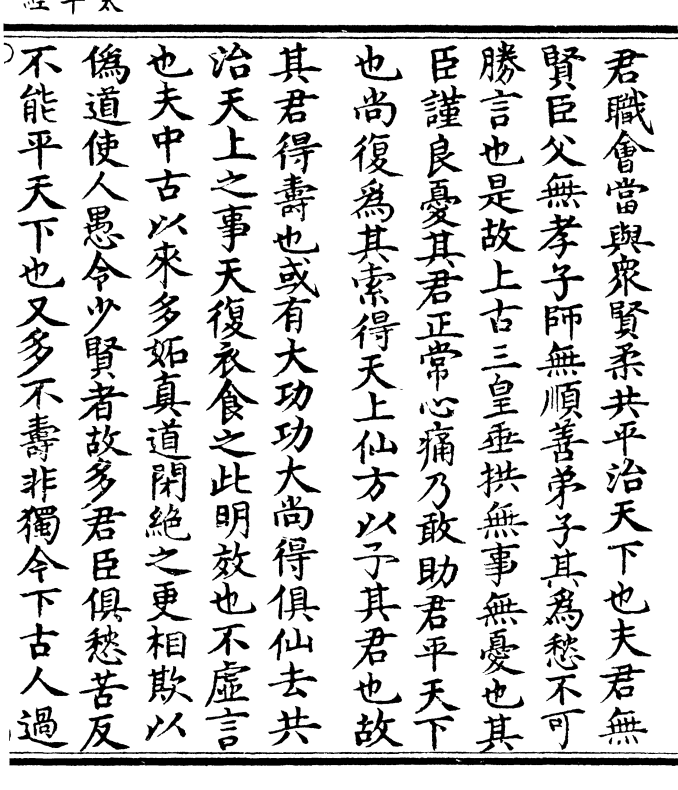 君職會當與衆賢柔共平治天下也夫君無
賢臣父無孝子師無順善弟子其爲愁不可
勝言也是故上古三皇垂拱無事無憂也其
臣謹良憂其君正常心痛乃敢助君平天下
也尚復爲其索得天上仙方以予其君也故
其君得壽也或有大功功大尚得俱仙去共
治天上之事天復衣食之此明效也不虛言
也夫中古以來多妬真道閉絶之更相欺以
僞道使人愚令少賢者故多君臣俱愁苦反
不能平天下也又多不壽非獨今下古人過